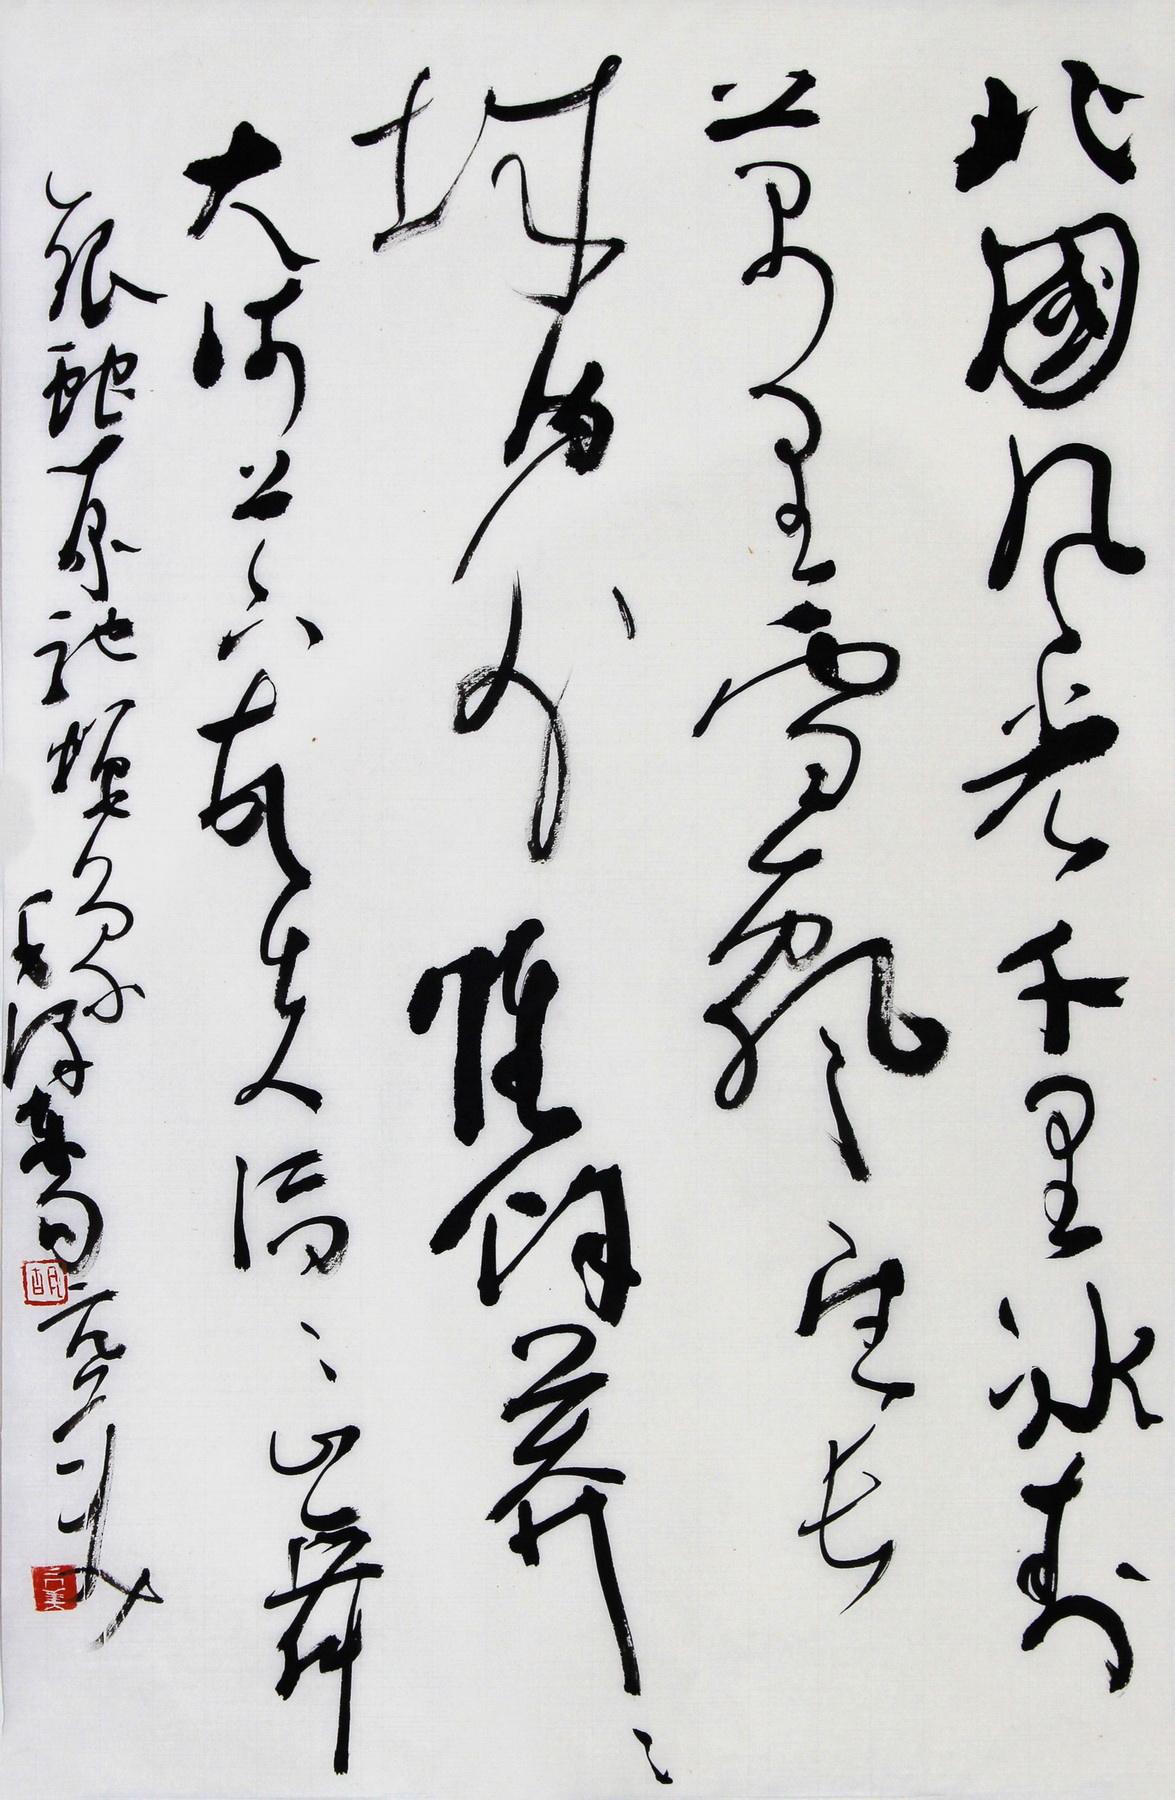 北國風光千里冰封
萬里雪飄望長
城內外惟餘莽〻
大河上下頓失滔〻山舞
銀蛇原馳蠟象
毛澤東句
元美
胡